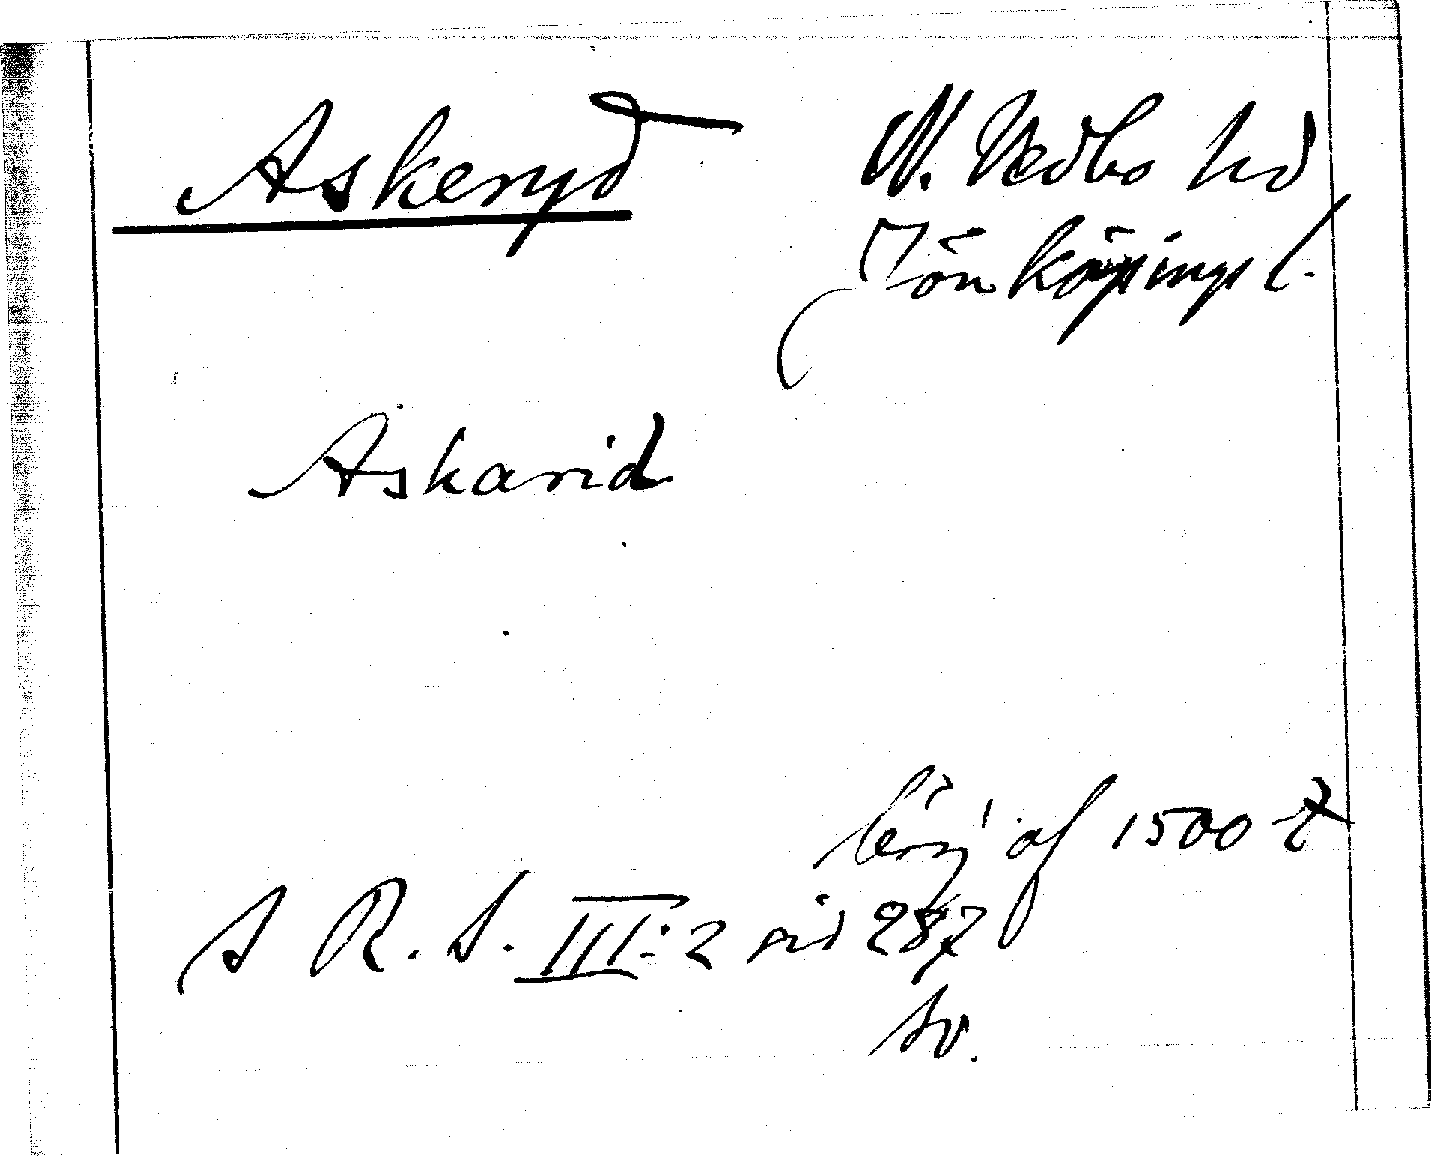 Askeryd N. Vedbo hd
Jönköpings l.
Askarid
börj. af 1500 t
S R. S. III:2 sid 287
Sv.